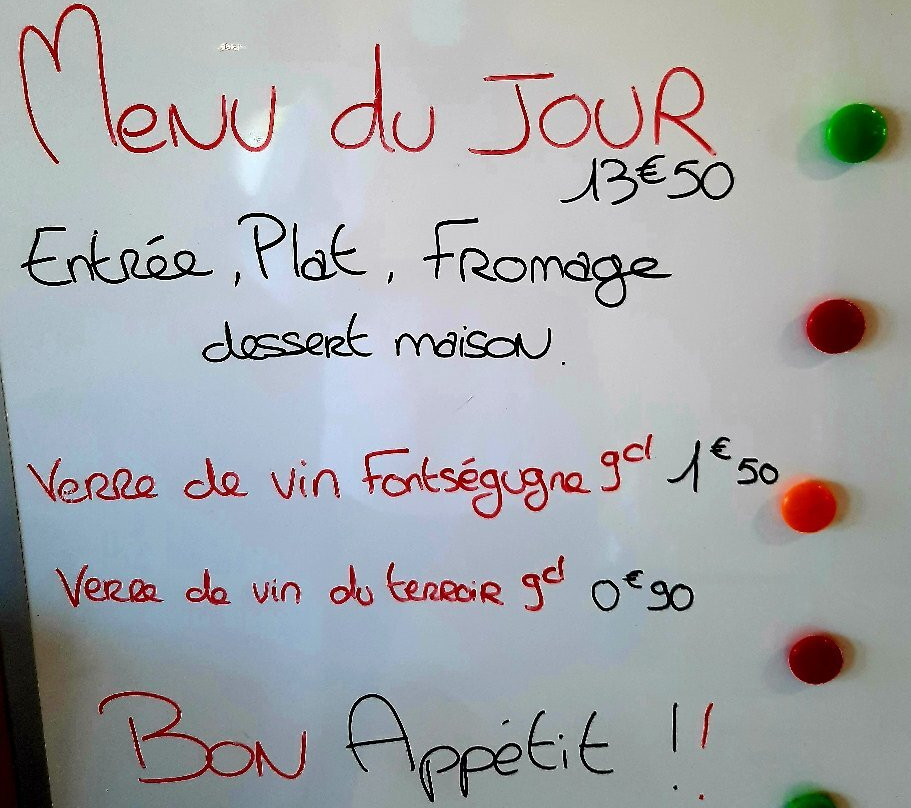 Menu du Jour
13€50
Entrée, Plat, Fromage
dessert maison.
Verre de vin Fontségugne gd 1€50
Verre de vin du terroir gd 0€90
Bon Appétit !!